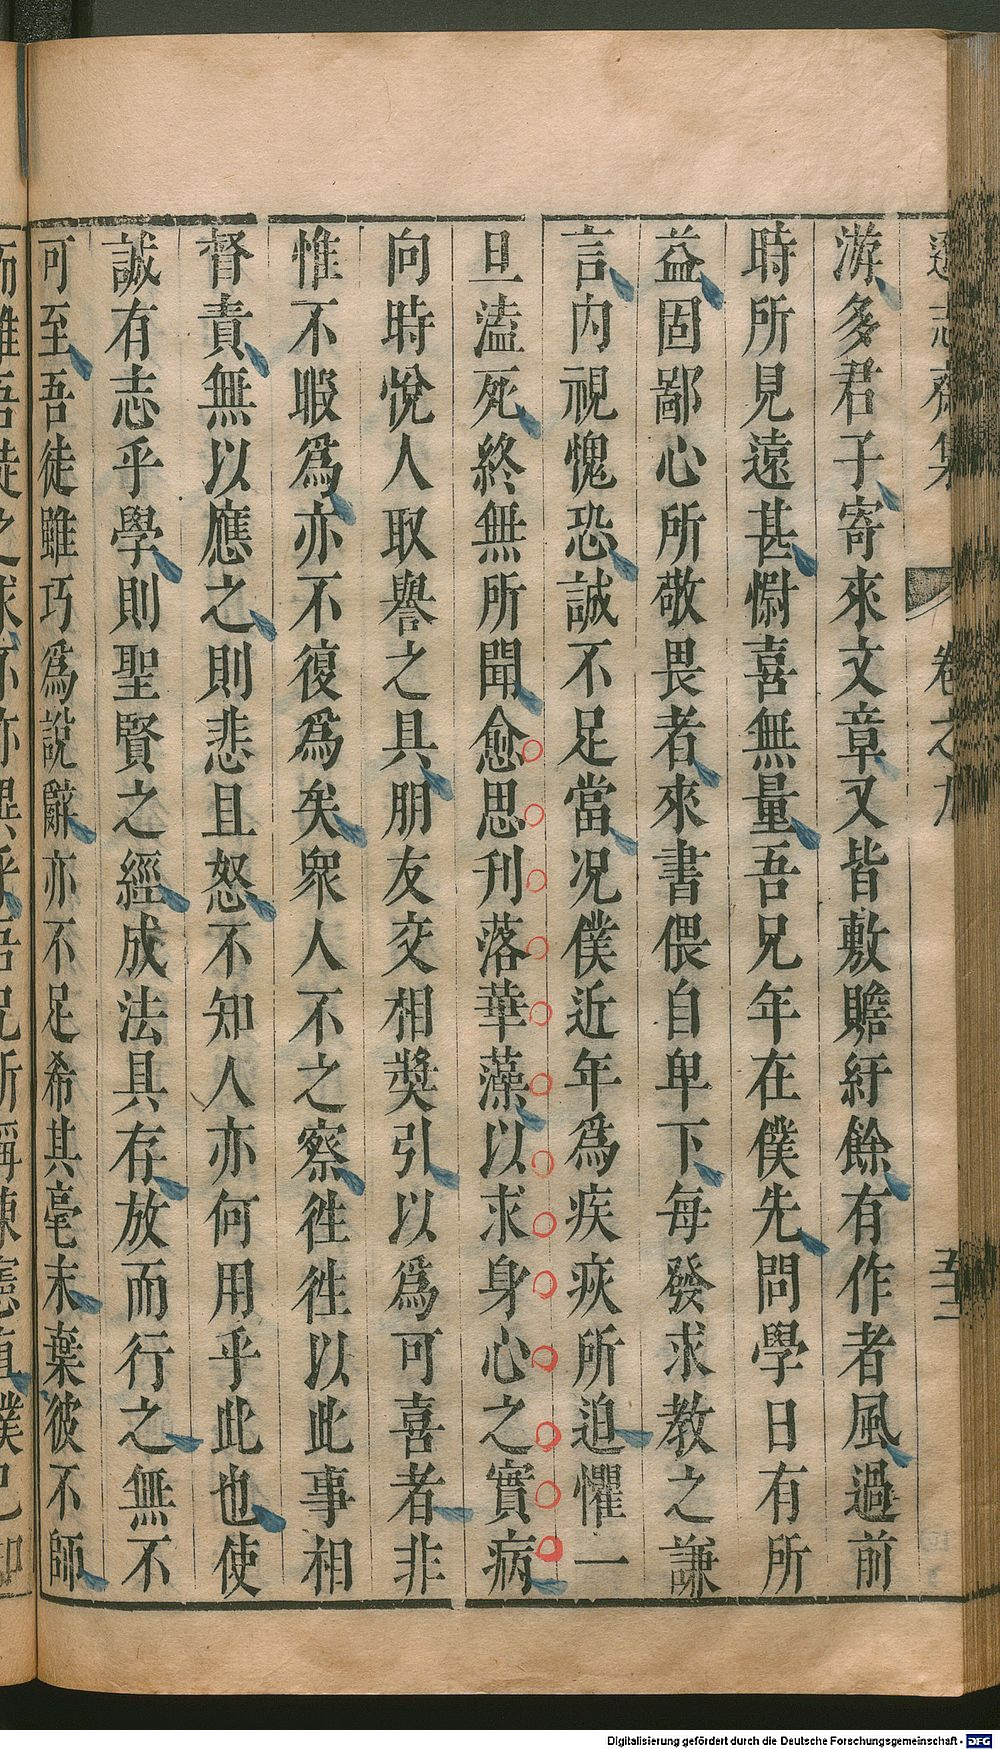 遜志齋集 卷之九 五十二
游多君子寄來文章又皆敷贍紆餘有作者風過前
時所見遠甚慰喜無量吾兄年在僕先問學日有所
益固鄙心所敬畏者來書偎自卑下每發求教之謙
言内視愧恐誠不足當况僕近年為疾疢所迫懼一
旦溘死終無所聞愈思刋落華藻以求身心之實病
向時悅人取譽之具朋友交相奬引以為可喜者非
惟不暇為亦不復為矣衆人不之察徃徃以此事相
督責無以應之則悲且怒不知人亦何用乎此也使
誠有志乎學則聖賢之經成法具存放而行之無不
可至吾徒雖巧為說辭亦不足希其毫末葉彼不師
吾徒之求亦
吾兄所稱陳
僕已
Digitalisierung gefördert durch die Deutsche Forschungsgemeinschaft - DFG